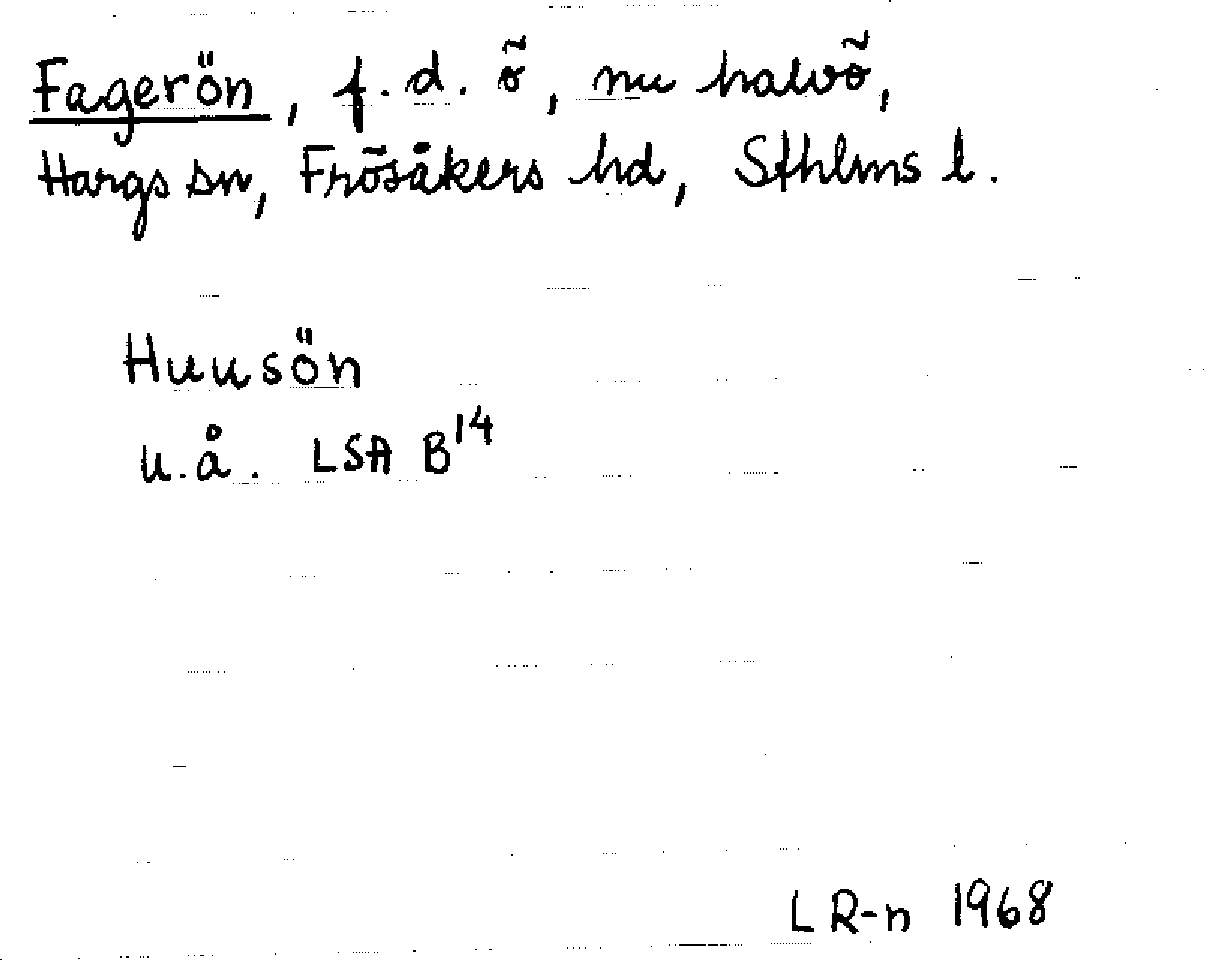 Fagerön, f.d. ö, nu halvö,
Hargs sn, Frösåkers hd, Sthlms l.
Huusön
u.å. LSA B¹⁴
LR-n 1968